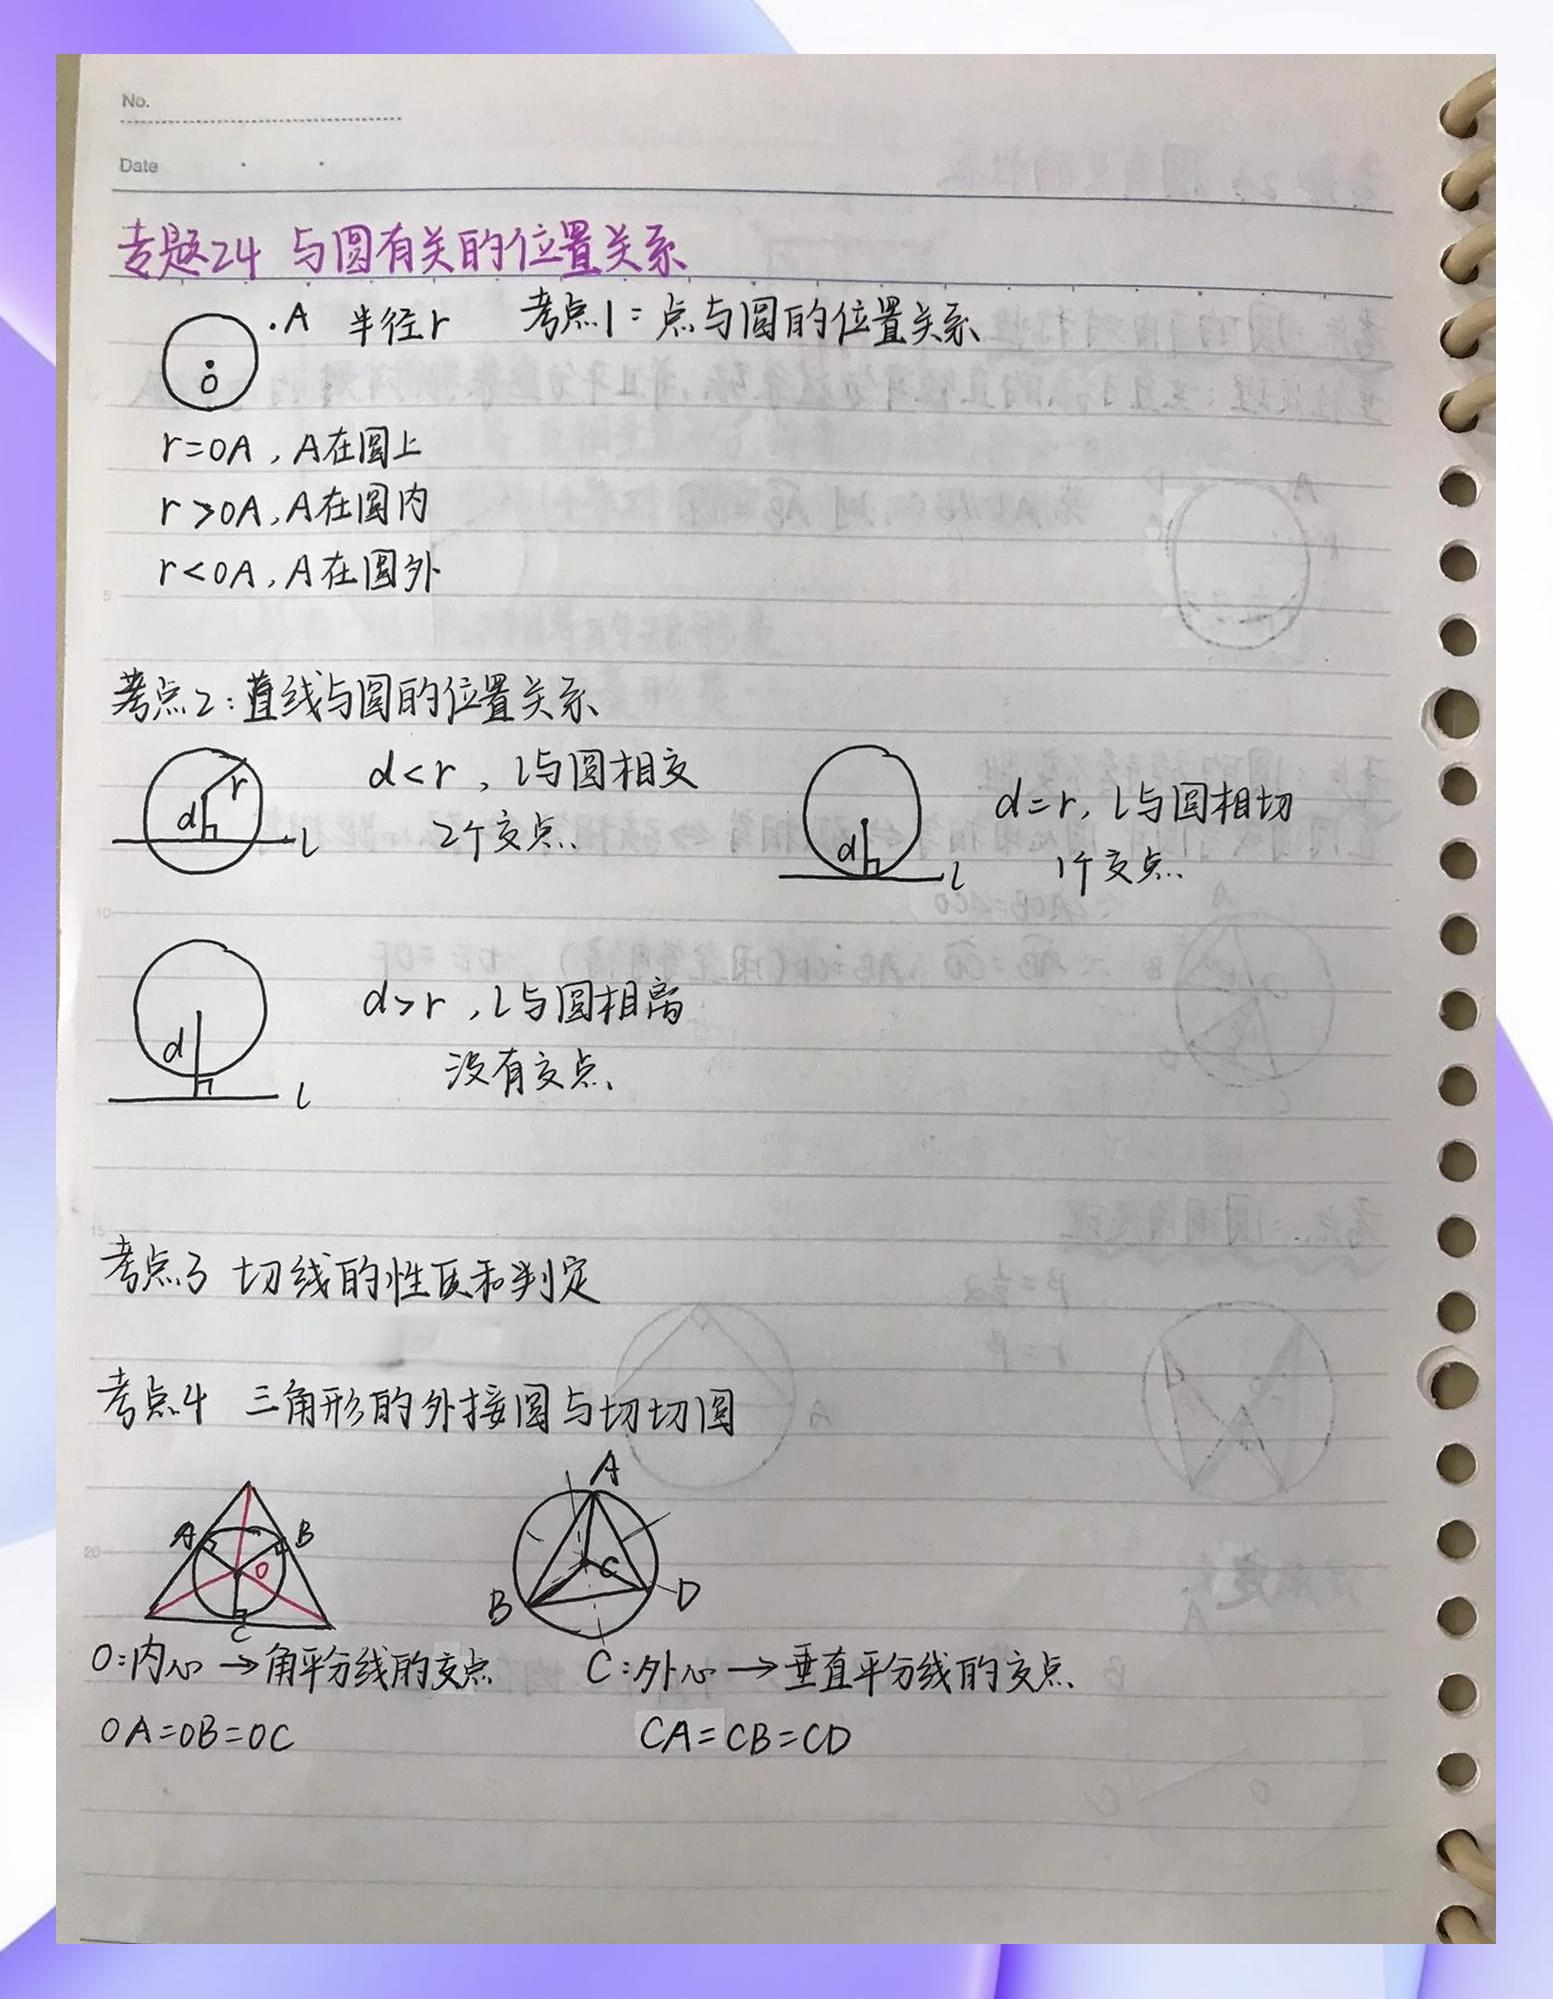 No.
Date
专题24 与圆有关的位置关系
.A 半径r 考点1：点与圆的位置关系
O
r=OA，A在圆上
r>OA，A在圆内
r<OA，A在圆外
考点2：直线与圆的位置关系
r
d
l
d<r，l与圆相交
2个交点
d
l
d=r，l与圆相切
1个交点
d
l
d>r，l与圆相离
没有交点
考点3 切线的性质和判定
考点4 三角形的外接圆与切切圆
A B
O
C
A
C
B D
O：内心→角平分线的交点
C：外心→垂直平分线的交点
OA=OB=OC
CA=CB=CD
5
10
15
20